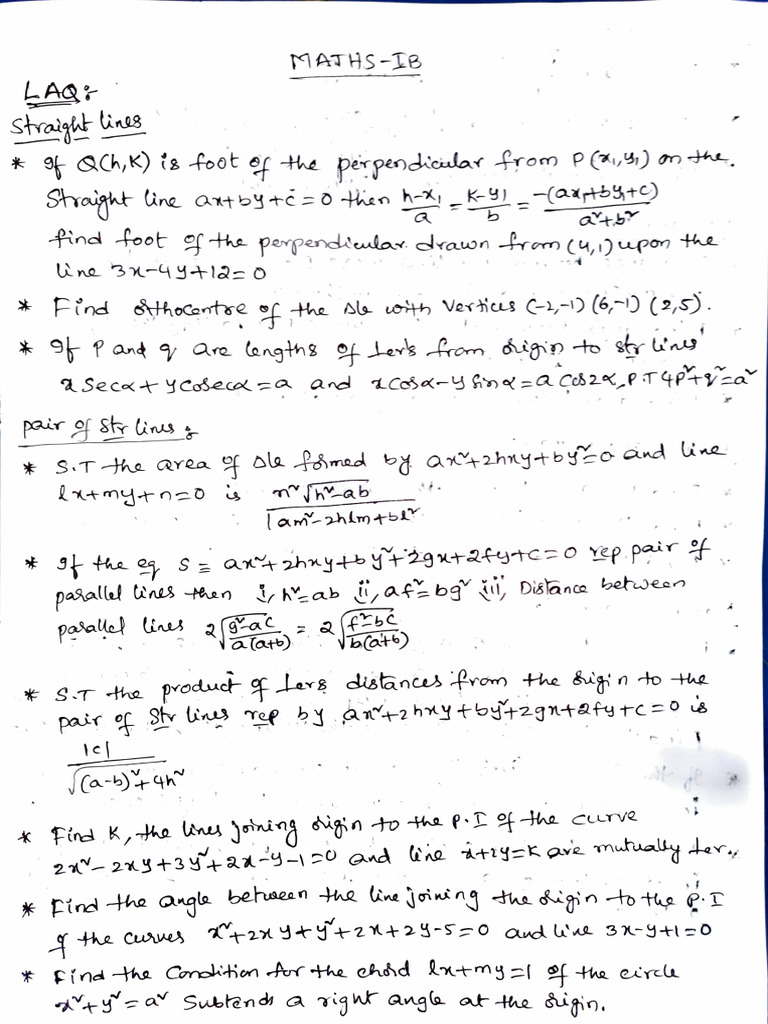 MATHS-IB
LAQ:
Straight lines
* If Q(h,K) is foot of the perpendicular from P(x₁,y₁) on the.
Straight line ax+by+c=0 then (h-x₁)/a = (K-y₁)/b = -(ax₁+by₁+c)/(a²+b²)
find foot of the perpendicular drawn from (4,1) upon the
line 3x-4y+12=0
* Find orthocentre of the Δle with Vertices (-2,-1) (6,-1) (2,5).
* If P and q are lengths of ⊥ers from origin to str lines
x Secα + y cosecα = a and x cosα - y sinα = a cos2α, P.T 4P²+q²=a²
pair of Str lines:
* S.T the area of Δle formed by ax²+2hxy+by²=0 and line
lx+my+n=0 is n²√(h²-ab) / |am²-2hlm+bl²
* If the eq S ≡ ax²+2hxy+by²+2gx+2fy+c=0 rep pair of
parallel lines then i, h²=ab ii, af²=bg² iii, Distance between
parallel lines 2√((g²-ac)/(a(a+b))) = 2√((f²-bc)/(b(a+b)))
* S.T the product of ⊥ers distances from the origin to the
pair of Str lines rep by ax²+2hxy+by²+2gx+2fy+c=0 is
|c| / √((a-b)²+4h²)
* Find K, the lines joining origin to the P.I of the curve
2x²-2xy+3y²+2x-y-1=0 and line x+2y=K are mutually ⊥er.
* Find the angle between the line joining the origin to the P.I
of the curves x²+2xy+y²+2x+2y-5=0 and line 3x-y+1=0
* Find the Condition for the chord lx+my=1 of the circle
x²+y²=a² Subtends a right angle at the origin.